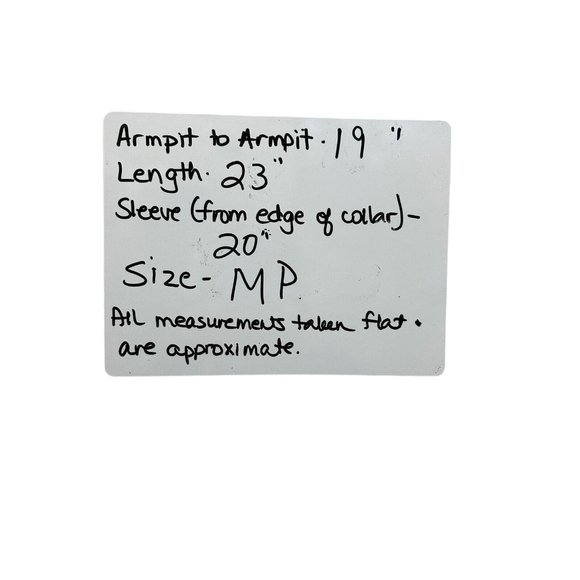 Armpit to Armpit. 19 "
Length. 23"
Sleeve (from edge of collar) -
20"
Size - MP
All measurements taken flat •
are approximate.